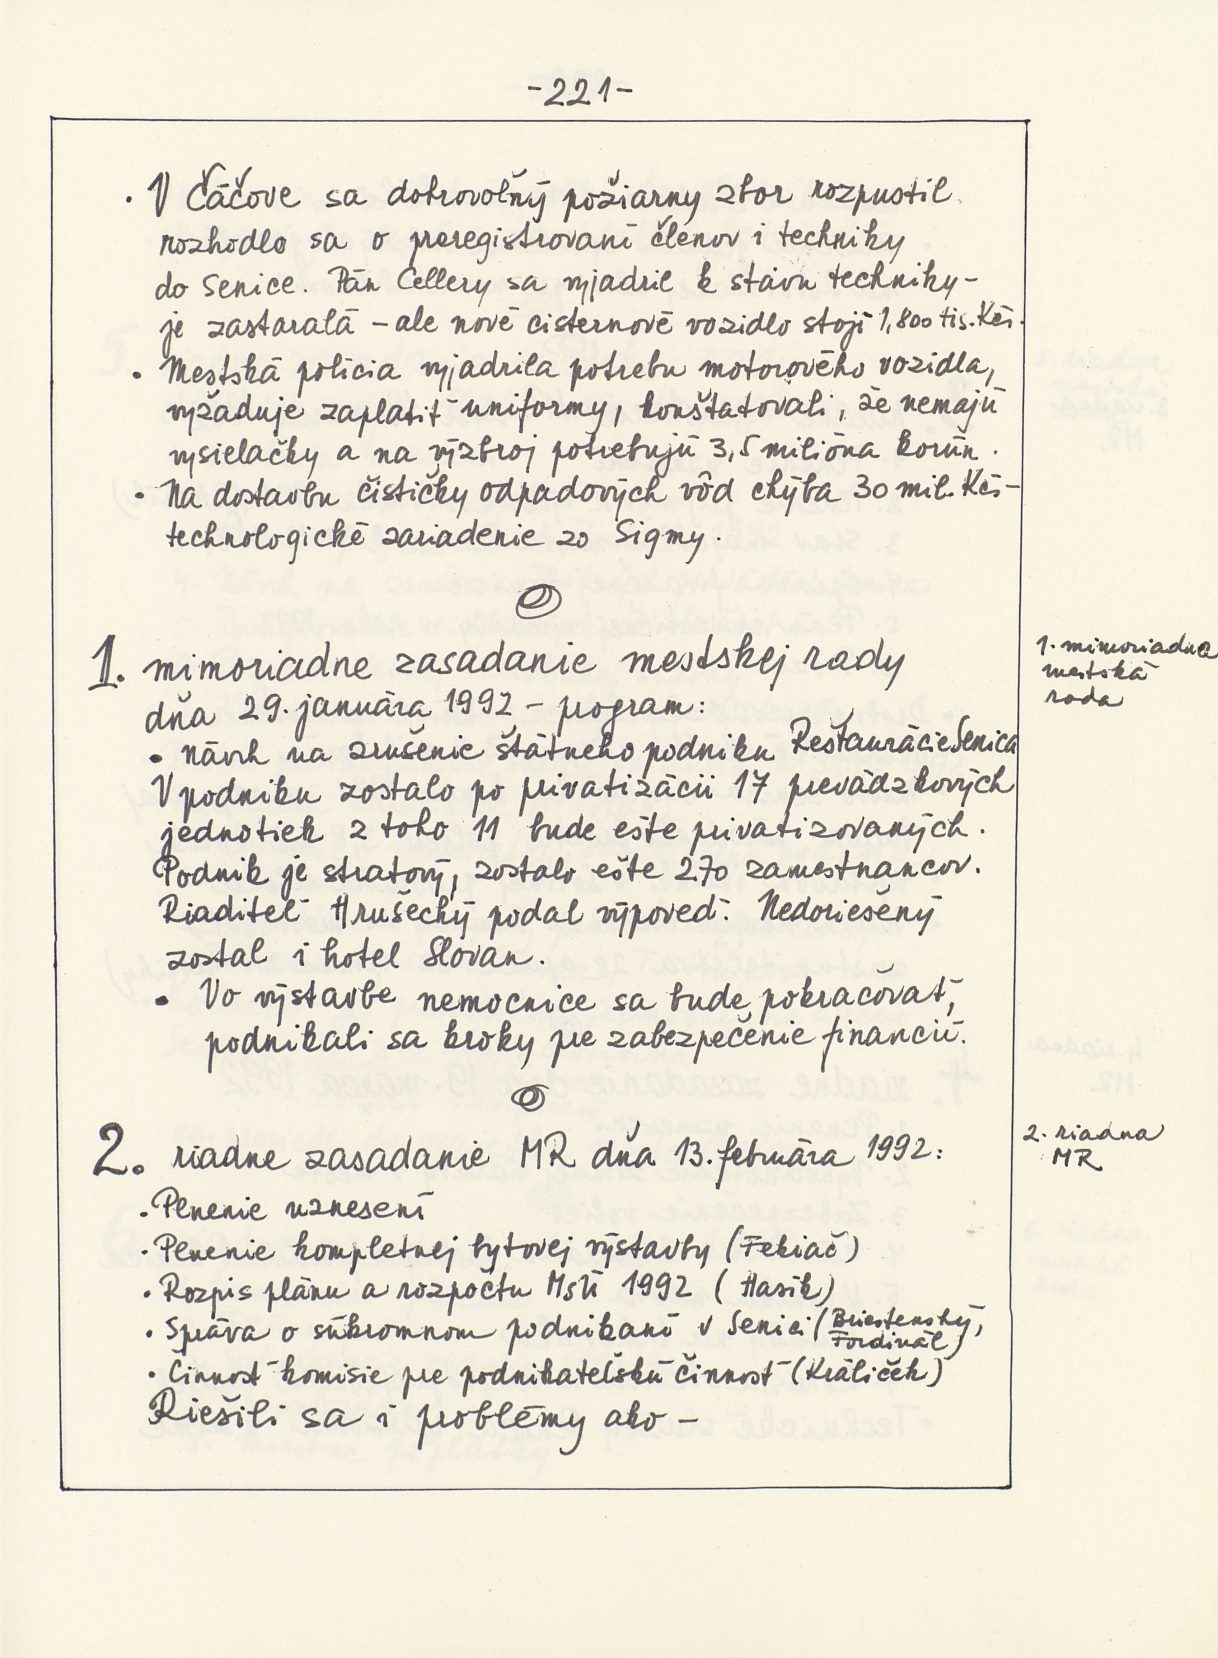 -221-
• V Čáčove sa dobrovoľný požiarny zbor rozpustil
rozhodlo sa o preregistrovaní členov i techniky
do Senice. Pán Cellery sa vyjadril k stavu techniky-
je zastaralá - ale nové cisternové vozidlo stojí 1,800 tis. Kčs.
• Mestská polícia vyjadrila potrebu motorového vozidla,
vyžaduje zaplatiť uniformy, konštatovali, že nemajú
vysielačky a na výzbroj potrebujú 3,5 milióna korún.
• Na dostavbu čističky odpadových vôd chýba 30 mil. Kčs-
technologické zariadenie zo Sigmy.
1. mimoriadne zasadanie mestskej rady
1. mimoriadna
mestská
rada
dňa 29. januára 1992 - program:
• Návrh na zrušenie štátneho podniku Reštaurácie Senica
V podniku zostalo po privatizácii 17 prevádzkových
jednotiek z toho 11 bude ešte privatizovaných.
Podnik je stratový, zostalo ešte 270 zamestnancov.
Riaditeľ Hrušecký podal výpoveď. Nedoriešený
zostal i hotel Slovan.
• Vo výstavbe nemocnice sa bude pokračovať,
podnikali sa kroky pre zabezpečenie financií.
2. riadne zasadanie MR dňa 13. februára 1992:
2. riadna
MR
• Plnenie uznesení
• Plnenie kompletnej bytovej výstavby (Fekiač)
• Rozpis plánu a rozpočtu MsÚ 1992 (Hasík)
• Správa o súkromnom podnikaní v Senici (Briestenský,
Fordinál)
• Činnosť komisie pre podnikateľskú činnosť (Králiček)
Riešili sa i problémy ako -